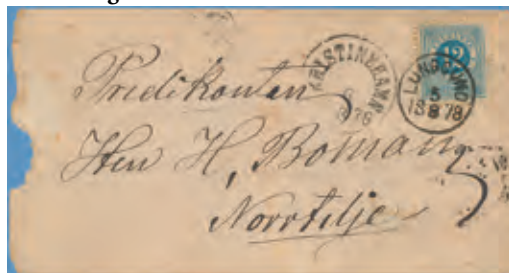 KRISTINEHAMN
12
LUNDSJÖNS
5
18 8 78
Predikanten
Herr H, Boman
Norrtelje